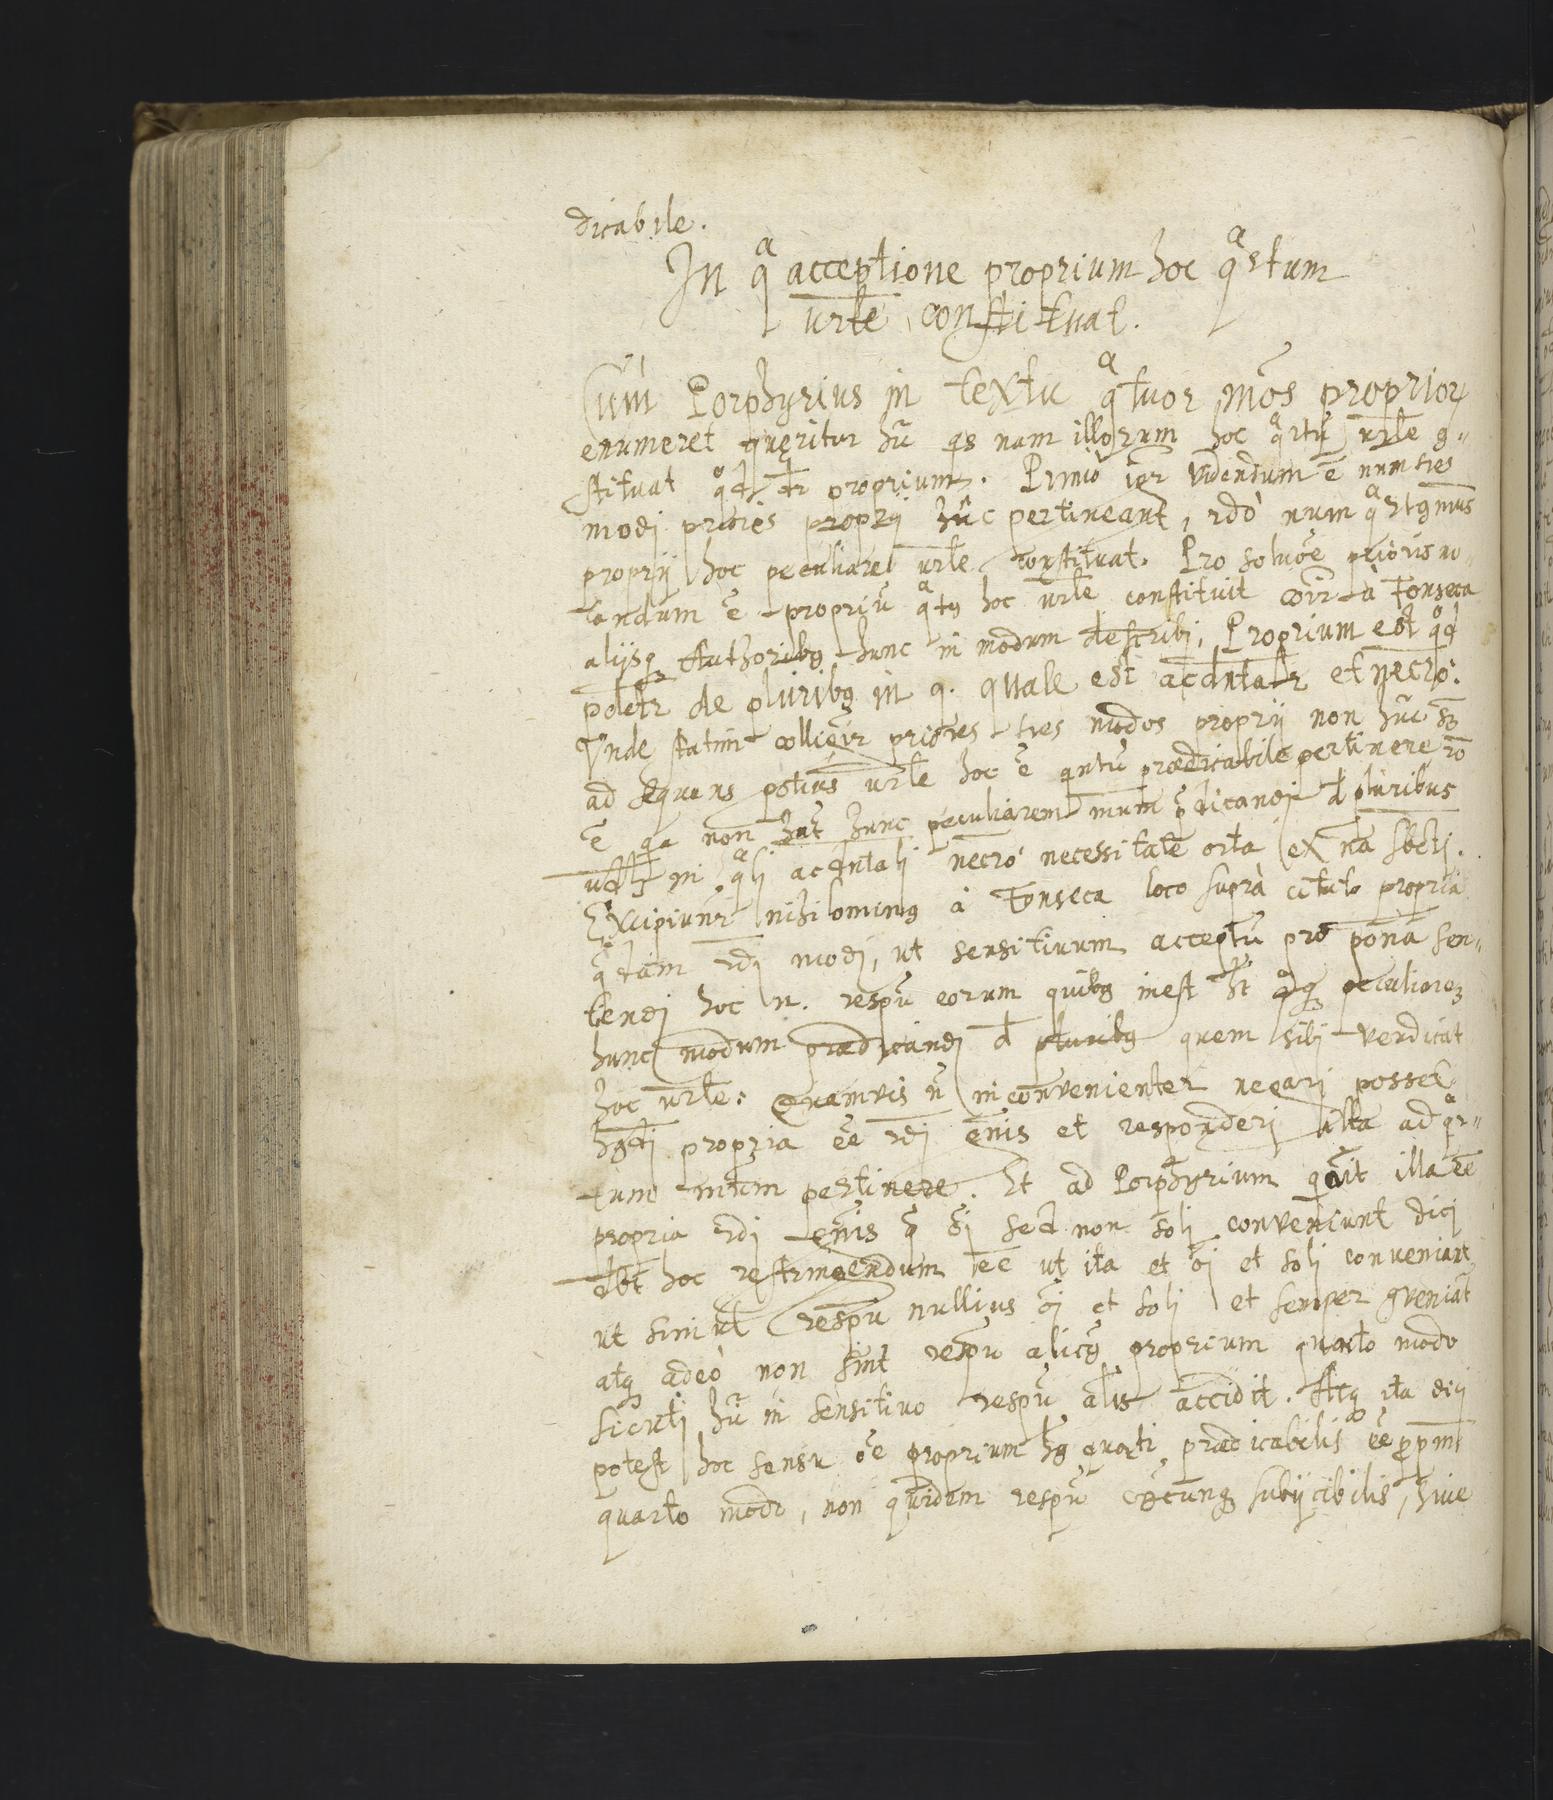 dicabile.
In qͣ acceptione proprium hoc qͣrtum
urle constituat.
Cum Porphyrius in textu qͣtuor mōs proprior
enumeret quęritur hū qs nam illorum hoc qͣrtū urle 9-
stituat qͦd dr proprium. Primò igr videndum ē num tres
modi priores proprij hûc pertineant, 2dò num qͣrtus
proprij hoc peculiare urle constituat. Pro solūōe prioris no-
tandum ē propriū qͣtꝰ hoc urle constituit cōir à Fonseca
alijsq Authoribꝰ hunc in modum describi, Proprium est qͦd
pdctr de pluribꝰ in q. quale est accdntalr et necrò.
Unde statim colligitr priores tres modos proprij non hûc
ad sequens potius urle hoc ē qntū prædicabile pertinere rō
ē qa non hnt hunc peculiarem mdum pdicandi d pluribus
in qͣli accdntali necrò necessitate orta ex nā sbcti.
Excipiuntr nihilominꝰ à Fonseca loco suprà citato propria
qͣdam 2di modi, ut sensitiuum acceptū pro pōnā sen-
tiendi hoc n. respū eorum quibꝰ inest ht qͦq peculiarem
hunc modum prædicandi d pluribꝰ quem sibi vendicat
hoc urle. Quamvis n inconvenienter negari posset
propria ēe 2di gnis et responderi illa ad qͣr-
tum mdum pertinere. Et ad Porphyrium qͣ ait illa ēe
propria 2di gnis q ōi sed non soli conveniunt dici
dbt hoc restringendum ēe ut ita et ōi et soli conveniant
ut simul respū nullius ōi et soli et semper 9veniāt
atq adeò non sint respū alicꝰ proprium quarto modo
sicuti hū in sensitivo respū alis accidit. Atq ita dici
potest hoc sensu ōe proprium hꝰ quarti prædicabilis ēe ppm
quarto modo, non quidem respū cꝰcunq subijcibilis, sive